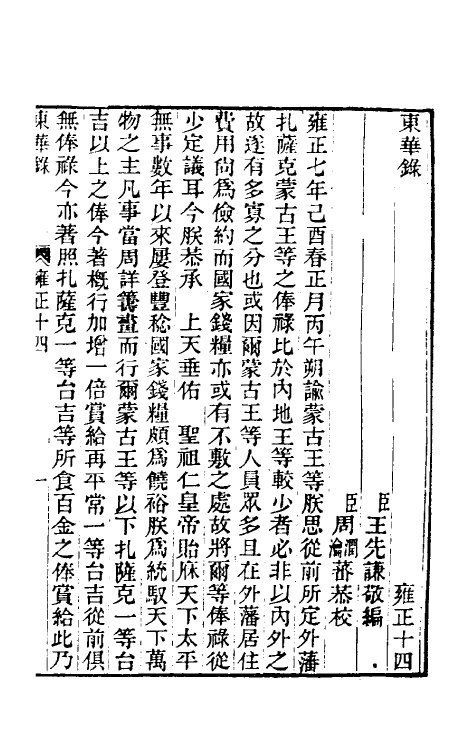 東華錄 雍正十四
臣王先謙敬編
臣周潤蕃 瀹蕃恭校
雍正七年己酉春正月丙午朔諭蒙古王等朕思從前所定外藩
扎薩克蒙古王等之俸祿比於內地王等較少者必非以內外之
故遂有多寡之分也或因爾蒙古王等人員眾多且在外藩居住
費用尚為儉約而國家錢糧亦或有不敷之處故將爾等俸祿從
少定議耳今朕恭承 上天垂佑 聖祖仁皇帝貽庥天下太平
無事數年以來屢登豐稔國家錢糧頗為饒裕朕為統馭天下萬
物之主凡事當周詳籌畫而行爾蒙古王等以下扎薩克一等台
吉以上之俸今著概行加增一倍賞給再平常一等台吉從前俱
無俸祿今亦著照扎薩克一等台吉等所食百金之俸賞給此乃
東華錄 雍正十四 一